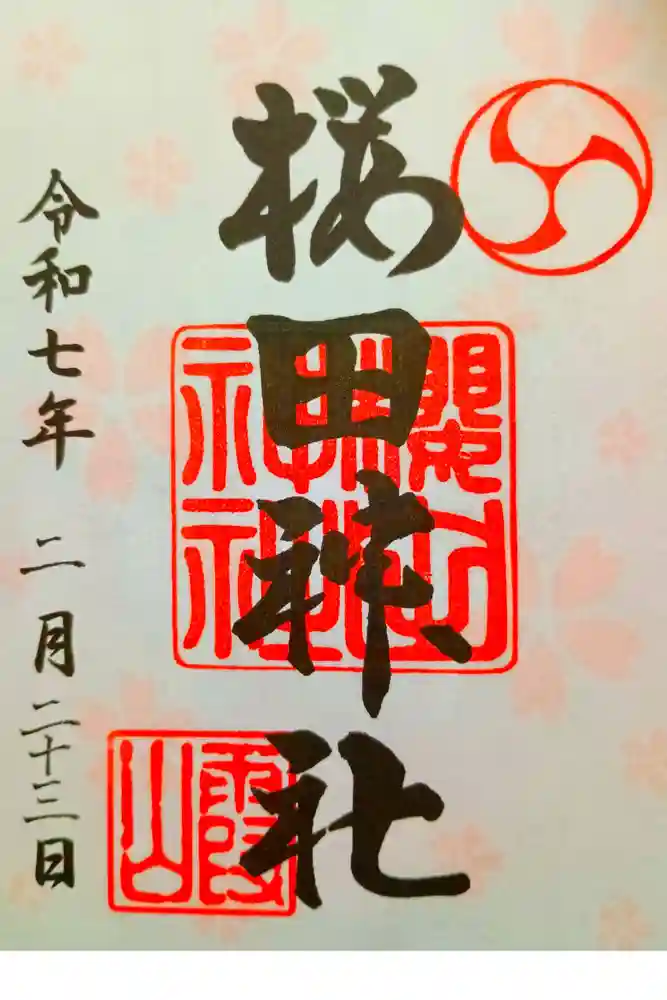 桜田神社
神社
霞山
令和七年 二月二十三日